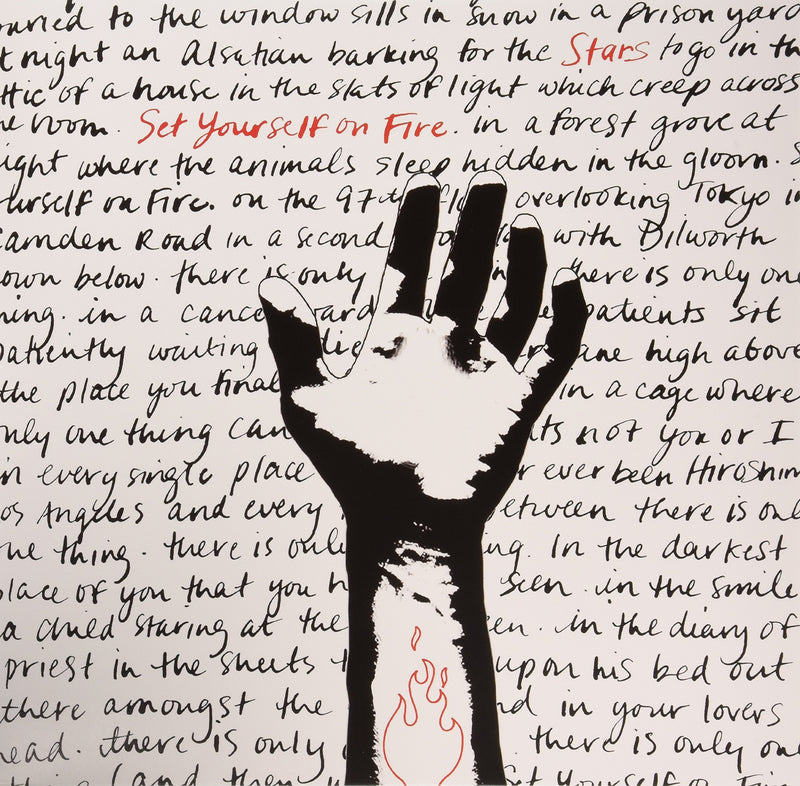 to the window sills in snow in a prison yard
t night an Alsatian barking for the Stars to go in th
ttic of a house in the slats of light which creep across
he room. Set Yourself on Fire. in a forest grove at
ight where the animals sleep hidden in the gloom. S
urself on Fire. on the 97th fl overlooking Tokyo in
Camden Road in a second with Dilworth
own below. there is only there is only one
hing. in a cance ward patients sit
patiently waiting die ane high above
the place you final in a cage where
only one thing can its not you or I
in every single place r ever been Hiroshim
os Angeles and every etween there is onl
one thing. there is only ing. In the darkest
place of you that you h seen. in the smile
a child staring at the en. in the diary of
priest in the sheets upon his bed out
there amongst the nd in your lovers
head. there is only there is only one
thing (and then Set Yourself on Fire